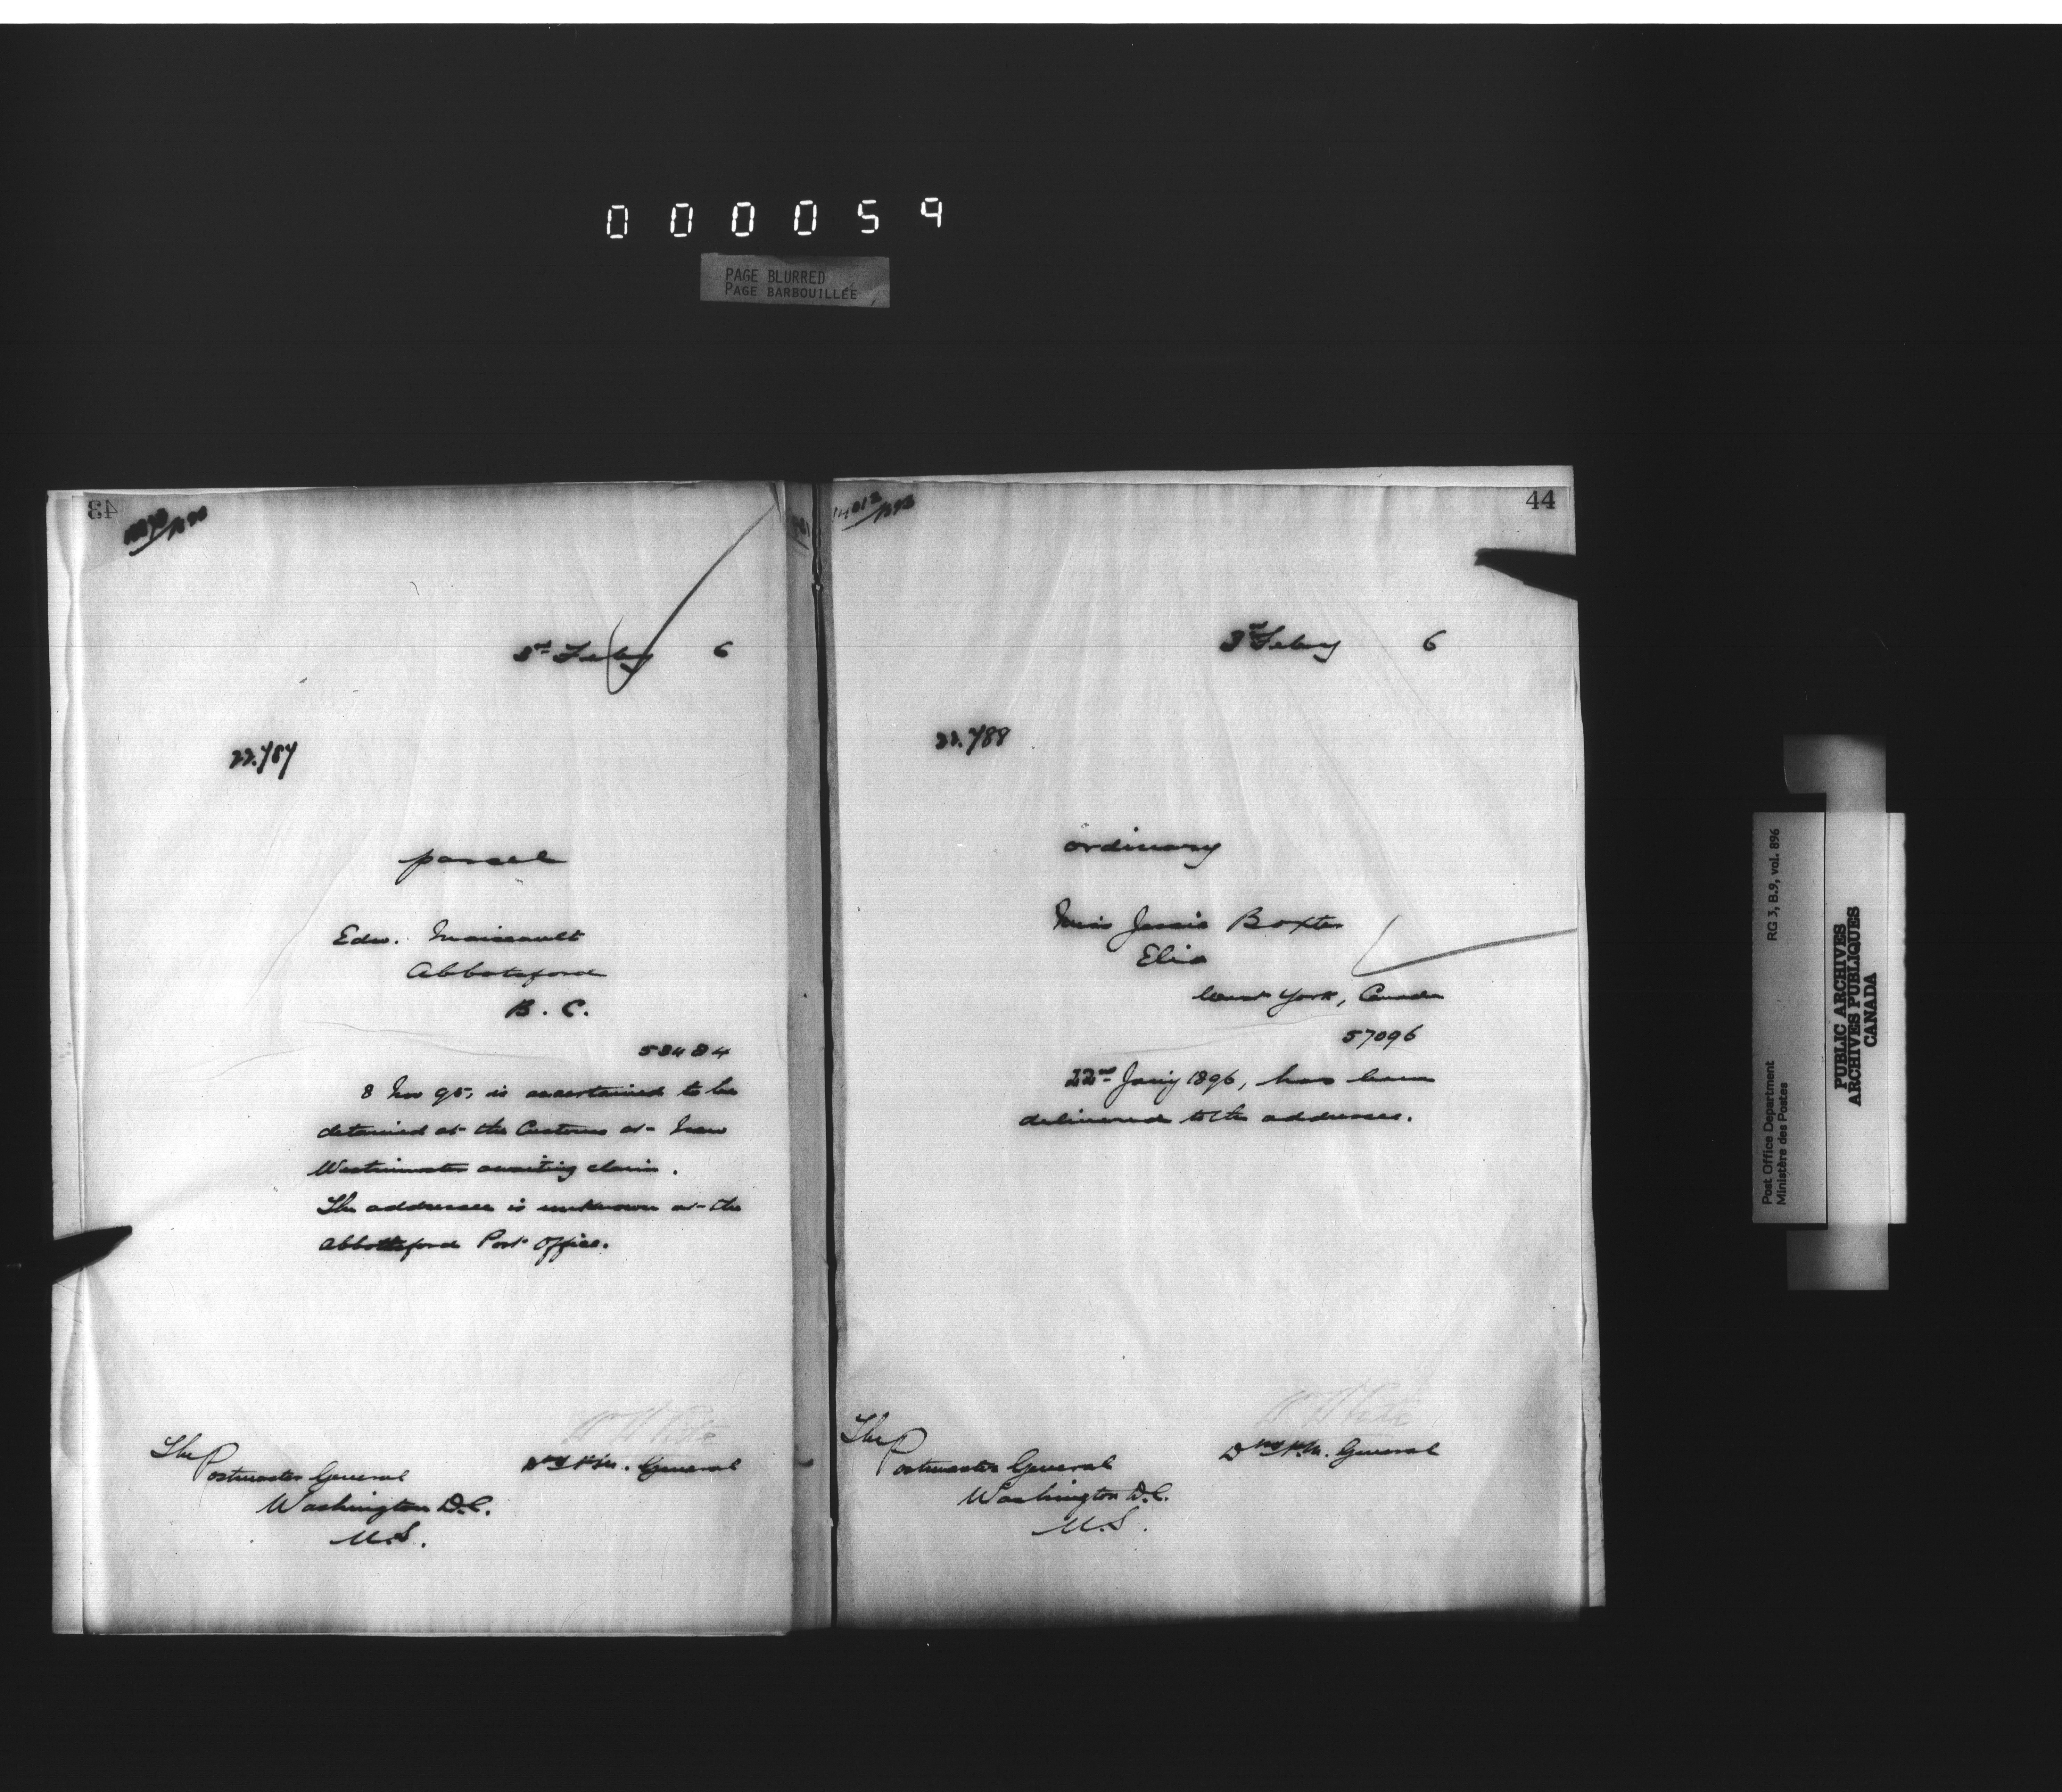 000059
PAGE BLURRED
PAGE BARBOUILLÉE
43
3rd Feby 6
22.787
parcel
Edw.
Abbotsford
B. C.
8 Nov 95, is ascertained to be
detained at the Customs at New
Westminster awaiting claim.
The addressee is unknown at the
Abbottsford Post Office.
W White
Dy P.M. General
The
Postmaster General
Washington D.C.
U.S.
44
3rd Feby 6
22.788
ordinary
Miss Jessie Boxter
Elia
West York, Canada
57096
22nd Jany 1896, has been
delivered to the addressee.
W White
Dy P.M. General
The
Postmaster General
Washington D.C.
U.S.
RG 3, B.9, vol. 896
Post Office Department
Ministère des Postes
PUBLIC ARCHIVES
ARCHIVES PUBLIQUES
CANADA